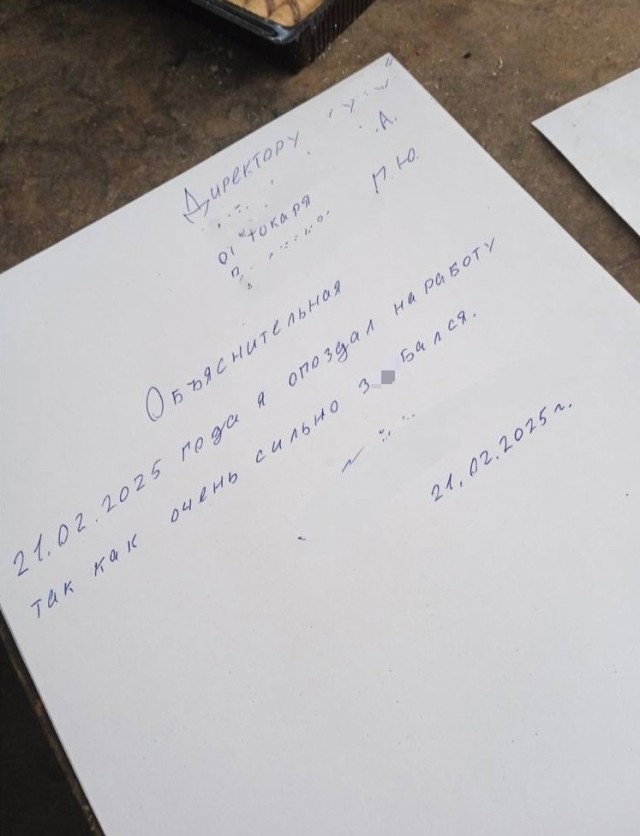 Директору
А.
от токаря
П.Ю.
Объяснительная
21.02.2025 года я опоздал на работу
так как очень сильно з бался.
21.02.2025г.